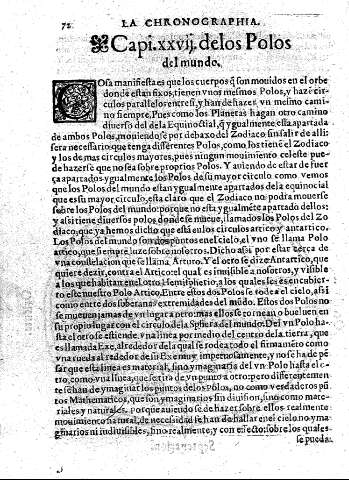 72 LA CHRONOGRAPHIA.
Capi. xxvij. de los Polos
del mundo.
COsa manifiesta es que los cuerpos q̃ son mouidos en el orbe
donde estan fixos, tienen vnos mesmos Polos, y hazẽ cir
culos parallelos entre si, y han de hazer vn mesmo cami
no siempre. Pues como los Planetas hagan otro camino
diuerso del de la Equinoctial, q̃ ygualmente esta apartada
de ambos Polos, mouiendose por debaxo del Zodiaco sin salir de alli:
sera necessario que tenga differentes Polos, como los tiene el Zodiaco
y los demas circulos mayores, pues ningun mouimiento celeste pue-
de hazerse que no sea sobre proprios Polos. Y auiendo de estar de fuer
ça apartados ygualmente los Polos de su mayor circulo como vemos
que los Polos del mundo estan ygualmente apartados de la equinocial
que es su mayor circulo, esta claro que el Zodiaco no podra mouerse
sobre los Polos del mundo: porque no esta ygualmẽte apartado dellos:
y assi tiene diuersos polos donde se mueue, llamados los Polos del Zo
diaco, que ya hemos dicho que està en los circulos artico y antartico.
Los Polos del mundo son dos puntos en el cielo, el vno se llama Polo
artico, que siempre luze sobre nosotros. Dicho assi por estar cerca de
vna constelacion que se llama Arturo. Y el otro se dize Antartico, que
quiere dezir, contra el Artico: el qual es inuisible a nosotros, y visible
a los que habitan en el otro Hemispherio, a los quales les es encubier-
to este nuestro Polo Artico. Entre estos dos Polos se rodea el cielo, assi
como entre dos soberanas extremidades del mũdo. Estos dos Polos no
se mueuen jamas de vn lugar a otro: mas ellos se tornean o bueluen en
su propio lugar con el circulo de la Sphera del mundo. Del vn Polo ha-
sta el otro se estiende vna linea por medio del centro de la tierra, que
es llamada Exe, alrededor de la qual se rodea todo el firmamẽto como
vna rueda al rededor de su Exe muy imperiosamente, y no se hà de pẽ
sar que esta linea es material, sino ymaginaria del vn Polo hasta el o-
tro, como vna linea que se tira de vn punto a otro: pero differentemen-
te se han de ymaginar los pũtos de los Polos, no como verdaderos pũ
tos Mathematicos, que son ymaginarios sin diuision, sino como mate-
riales y naturales. Porque auiendo se de hazer sobre ellos realmente
mouimiento natural, de necesidad se han de hallar en el cielo no y ma-
ginarios ni indiuisibles, sino realmente, y con efecto: sobre los quales
se pueda